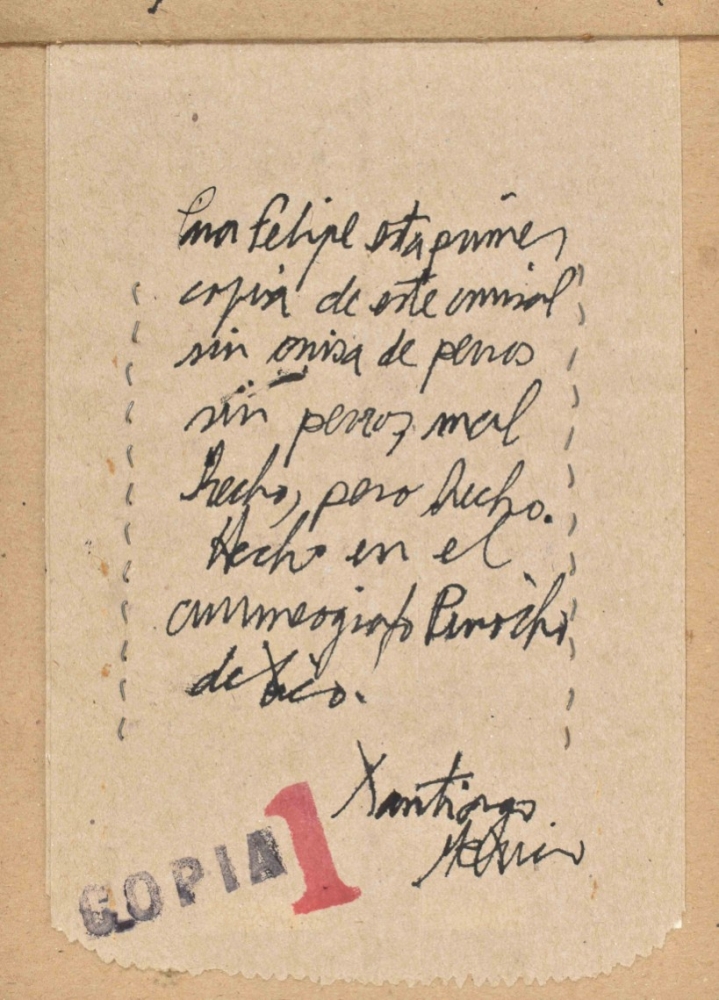 Para Felipe esta primer
copia de este misal
sin misa de perros
sin perros, mal
hecho, pero hecho.
Hecho en el
mimeografo Pinocho
de Xico.
Xantiago
COPIA 1